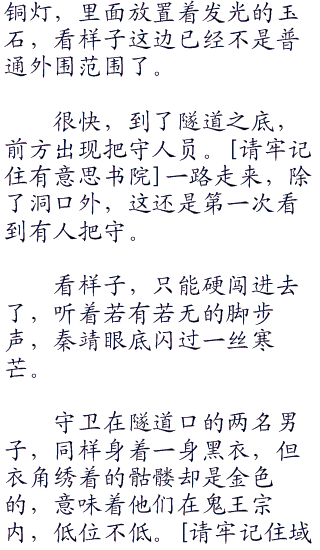 铜灯，里面放置着发光的玉
石，看样子这边已经不是普
通外围范围了。
很快，到了隧道之底，
前方出现把守人员。[请牢记
住有意思书院]一路走来，除
了洞口外，这还是第一次看
到有人把守。
看样子，只能硬闯进去
了，听着若有若无的脚步
声，秦靖眼底闪过一丝寒
芒。
守卫在隧道口的两名男
子，同样身着一身黑衣，但
衣角绣着的骷髅却是金色
的，意味着他们在鬼王宗
内，低位不低。[请牢记住域